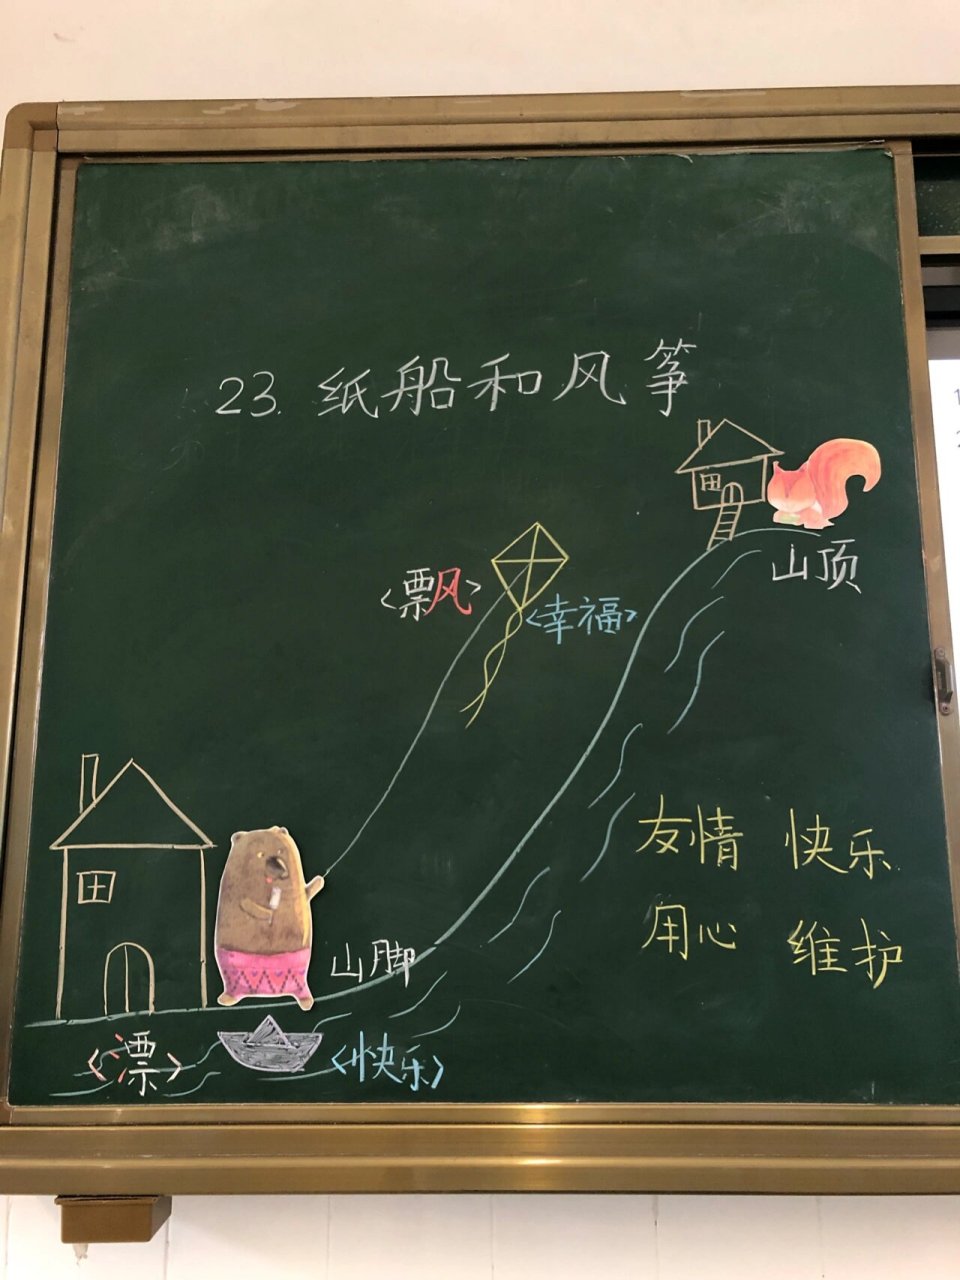 23. 纸船和风筝
山顶
<飘>
<幸福>
友情 快乐
用心 维护
山脚
<漂>
<快乐>